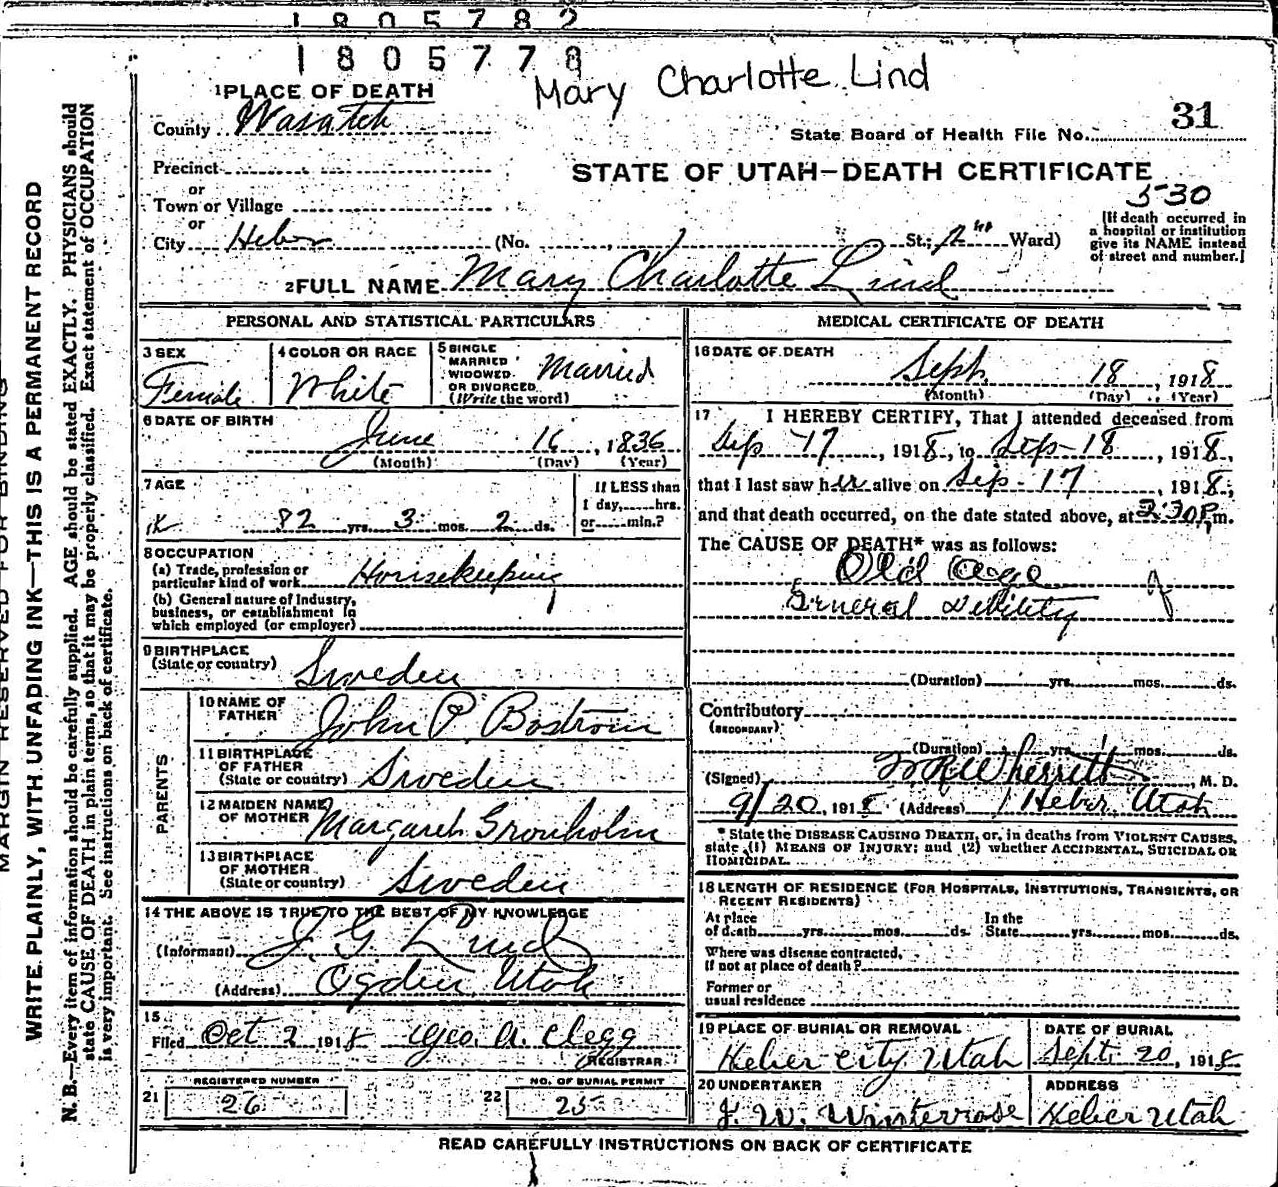 1805782
1805778
Mary Charlotte Lind
1 PLACE OF DEATH
County Wasatch
31
State Board of Health File No.
Precinct
STATE OF UTAH—DEATH CERTIFICATE
or
Town or Village
530
or
City Heber (No. St.; 2nd Ward)
[If death occurred in
a hospital or institution
give its NAME instead
of street and number.]
2 FULL NAME Mary Charlotte Lind
PERSONAL AND STATISTICAL PARTICULARS
3 SEX
Female
4 COLOR OR RACE
White
5 SINGLE
MARRIED
WIDOWED
OR DIVORCED
(Write the word)
Married
6 DATE OF BIRTH
June 16, 1836
(Month) (Day) (Year)
7 AGE
82 yrs. 3 mos. 2 ds.
If LESS than
1 day, hrs.
or min.?
8 OCCUPATION
(a) Trade, profession or
particular kind of work Housekeeping
(b) General nature of Industry,
business, or establishment in
which employed (or employer)
9 BIRTHPLACE
(State or country) Sweden
PARENTS
10 NAME OF
FATHER John P. Bostrom
11 BIRTHPLACE
OF FATHER
(State or country) Sweden
12 MAIDEN NAME
OF MOTHER Margareth Gronholm
13 BIRTHPLACE
OF MOTHER
(State or country) Sweden
14 THE ABOVE IS TRUE TO THE BEST OF MY KNOWLEDGE
(Informant) J. G. Lind
(Address) Ogden, Utah
15
Filed Oct 2 1918 Geo. A. Clegg
REGISTRAR
REGISTERED NUMBER
21 26
NO. OF BURIAL PERMIT
22 25
MEDICAL CERTIFICATE OF DEATH
16 DATE OF DEATH
Sept. 18, 1918
(Month) (Day) (Year)
17 I HEREBY CERTIFY, That I attended deceased from
Sep 17, 1918, to Sep-18, 1918,
that I last saw her alive on Sep-17, 1918,
and that death occurred, on the date stated above, at 2:30 P m.
The CAUSE OF DEATH* was as follows:
Old Age
General Debility
(Duration) yrs. mos. ds.
Contributory
(SECONDARY)
(Duration) yrs. mos. ds.
(Signed) Wherritt, M. D.
9/20, 1918 (Address) Heber, Utah
* State the DISEASE CAUSING DEATH, or, in deaths from VIOLENT CAUSES,
state (1) MEANS OF INJURY; and (2) whether ACCIDENTAL, SUICIDAL OR
HOMICIDAL.
18 LENGTH OF RESIDENCE (FOR HOSPITALS, INSTITUTIONS, TRANSIENTS, OR
RECENT RESIDENTS)
At place
of death yrs. mos. ds.
In the
State yrs. mos. ds.
Where was disease contracted,
If not at place of death?
Former or
usual residence
19 PLACE OF BURIAL OR REMOVAL
Heber City Utah
DATE OF BURIAL
Sept. 20, 1918
20 UNDERTAKER
J. W. Winterrose
ADDRESS
Heber Utah
READ CAREFULLY INSTRUCTIONS ON BACK OF CERTIFICATE
MARGIN RESERVED FOR BINDING
WRITE PLAINLY, WITH UNFADING INK—THIS IS A PERMANENT RECORD
N. B.—Every item of information should be carefully supplied. AGE should be stated EXACTLY. PHYSICIANS should
state CAUSE OF DEATH in plain terms, so that it may be properly classified. Exact statement of OCCUPATION
is very important. See instructions on back of certificate.